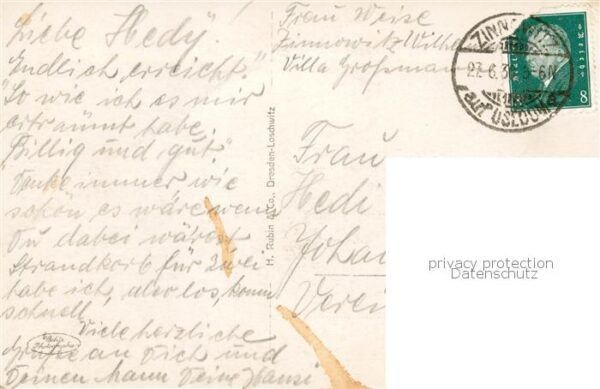 Liebe Hedy!
Endlich erreicht!
"So wie ich es mir
erträumt habe,
Billig und gut."
Denke immer wie
schön es wäre wenn
Du dabei wärest
Strandkorb für zwei
habe ich, aber los, komm
schnell.
Viele herzliche
Grüße an Dich und
Deinen Mann Deine Hansi
H. Rubin & Co., Dresden-Loschwitz
Frau Weise
Zinnowitz Wilh
Villa Großman
ZINNOWITZ
27.6.3 -6N
auf USEDOM
8
Frau
Hedi
Joha
Verei
privacy protection
Datenschutz